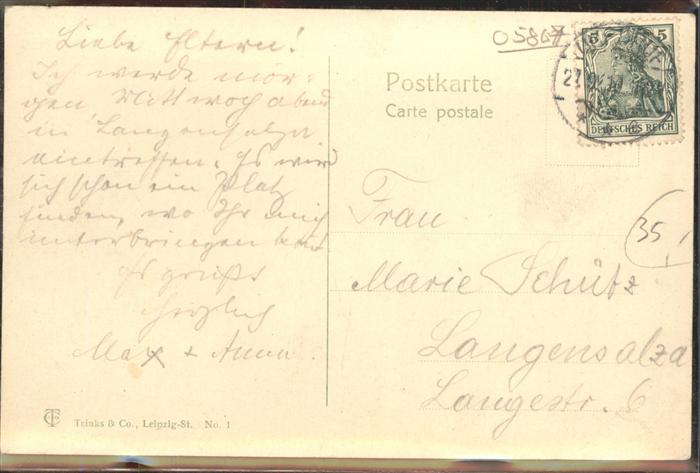 Liebe Eltern!
Ich werde mor-
gen, Mittwoch abend
in Langensalza
eintreffen. Es wird
sich schon ein Platz
finden, wo Ihr mich
unterbringen könnt.
Es grüßt
herzlich
Max + Anna.
Trinks & Co., Leipzig-St. No. 1
05807
Postkarte
Carte postale
5 5
DEUTSCHES REICH
Frau
Marie Schütz
Langensalza
Langestr. 6
35